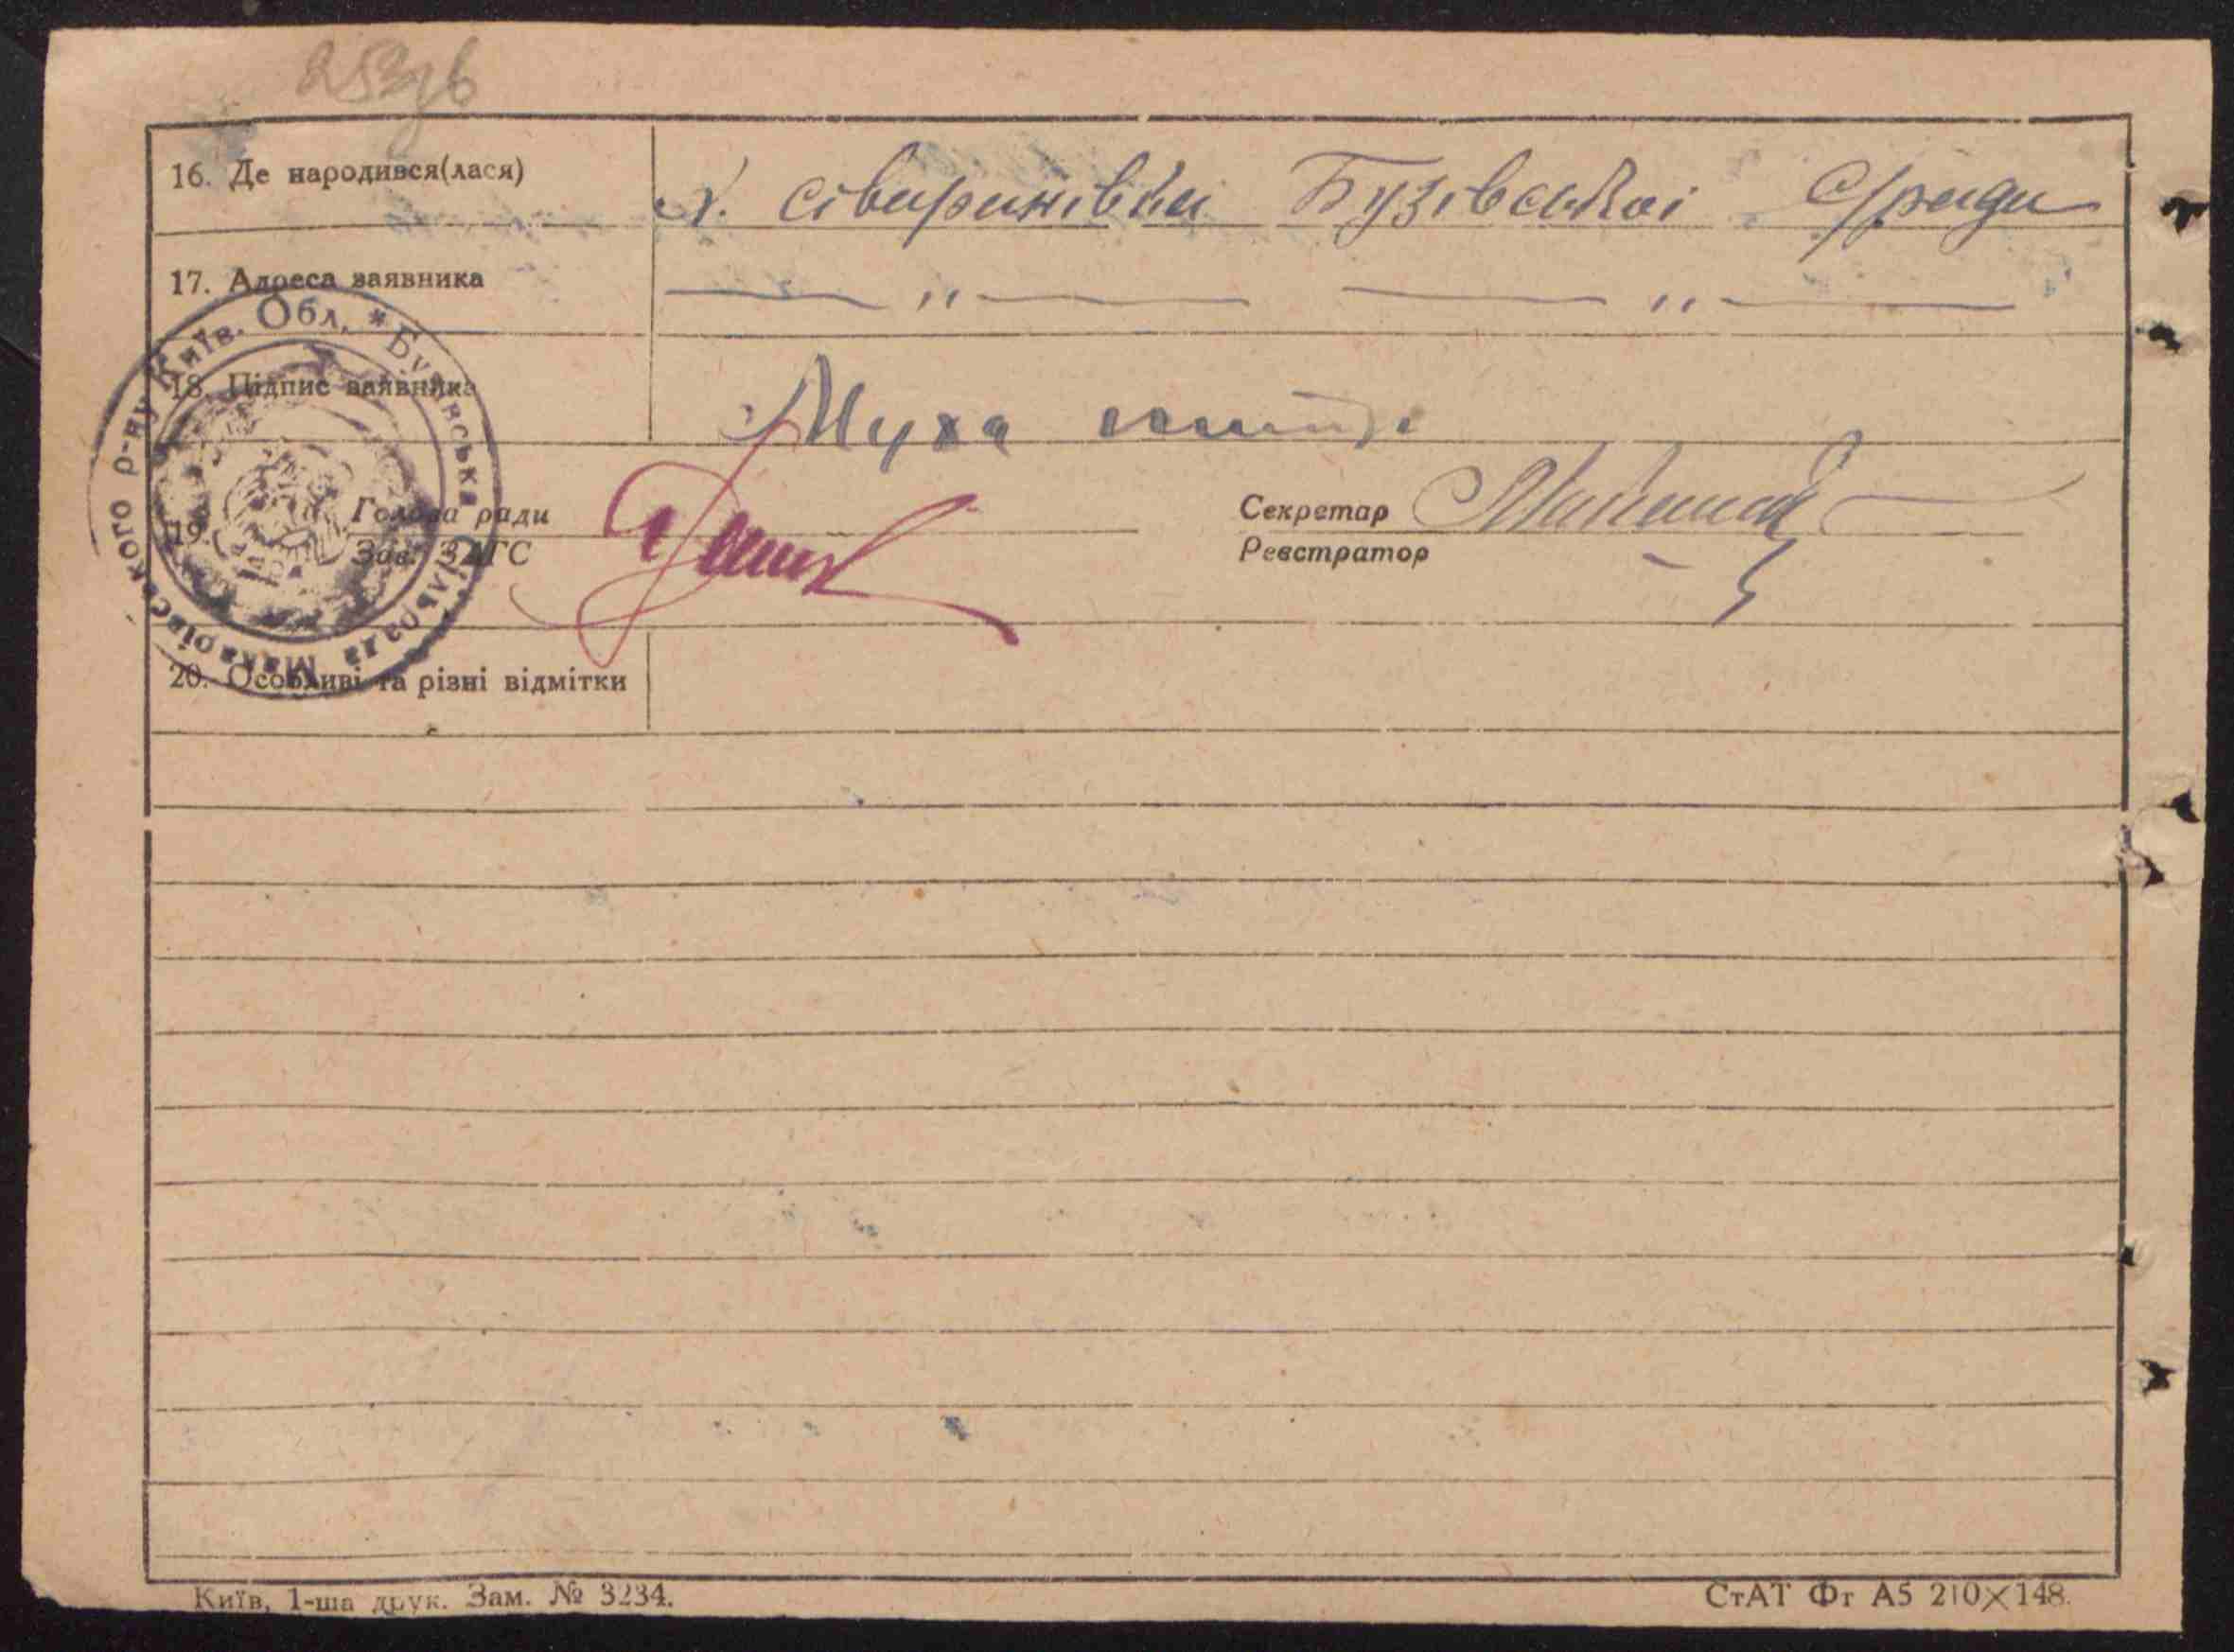 253зв
16. Де народився(лася) х. сівиринівки Бузівської с/ради
17. Адреса заявника — „ — — „ —
18. Підпис заявника Муха
19. Голова ради Секретар
Зав. ЗАГС Реєстратор
20. Особливі та різні відмітки
Бузівська сільрада Макарівського р-ну Київ. Обл. *
Київ, 1-ша друк. Зам. № 3234. СтАТ Фт А5 210×148.